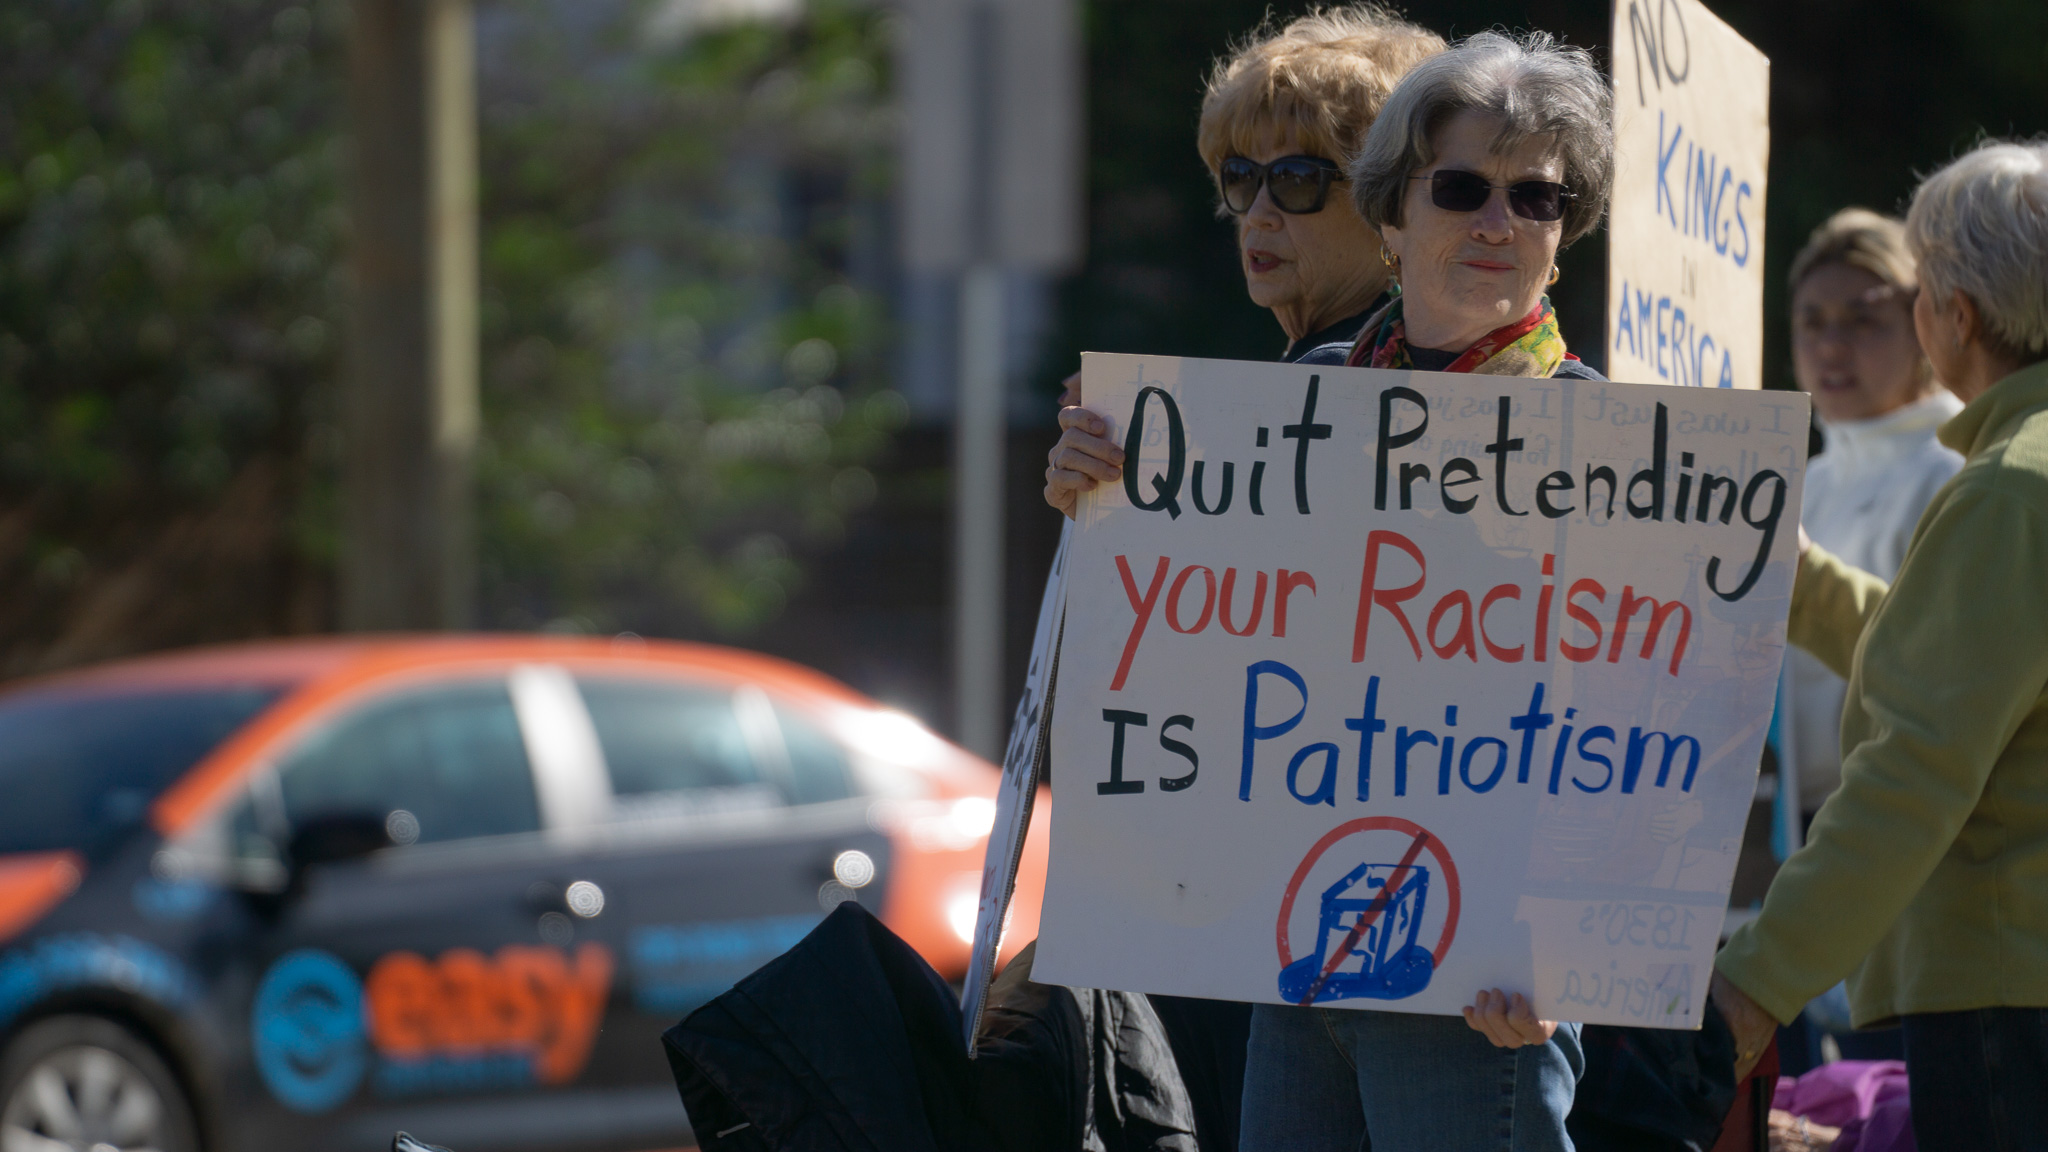 NO
KINGS
IN
AMERICA
Quit Pretending
your Racism
Is Patriotism
easy
1830's
America